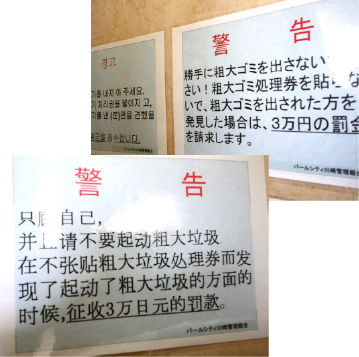 경고
기를 내지 아 주세요.
기 처리권을 붙이지 고,
기를 내 (분)편을 견했을
벌금을 청수합니다.
警 告
勝手に粗大ゴミを出さない
さい！粗大ゴミ処理券を貼らな
いで、粗大ゴミを出された方を
発見した場合は、3万円の罰金
を請求します。
パールシティ川崎管理組合
警 告
只顾自己，
并且请不要起动粗大垃圾
在不张贴粗大垃圾处理券而发
现了起动了粗大垃圾的方面的
时候,征收3万日元的罚款。
パールシティ川崎管理組合